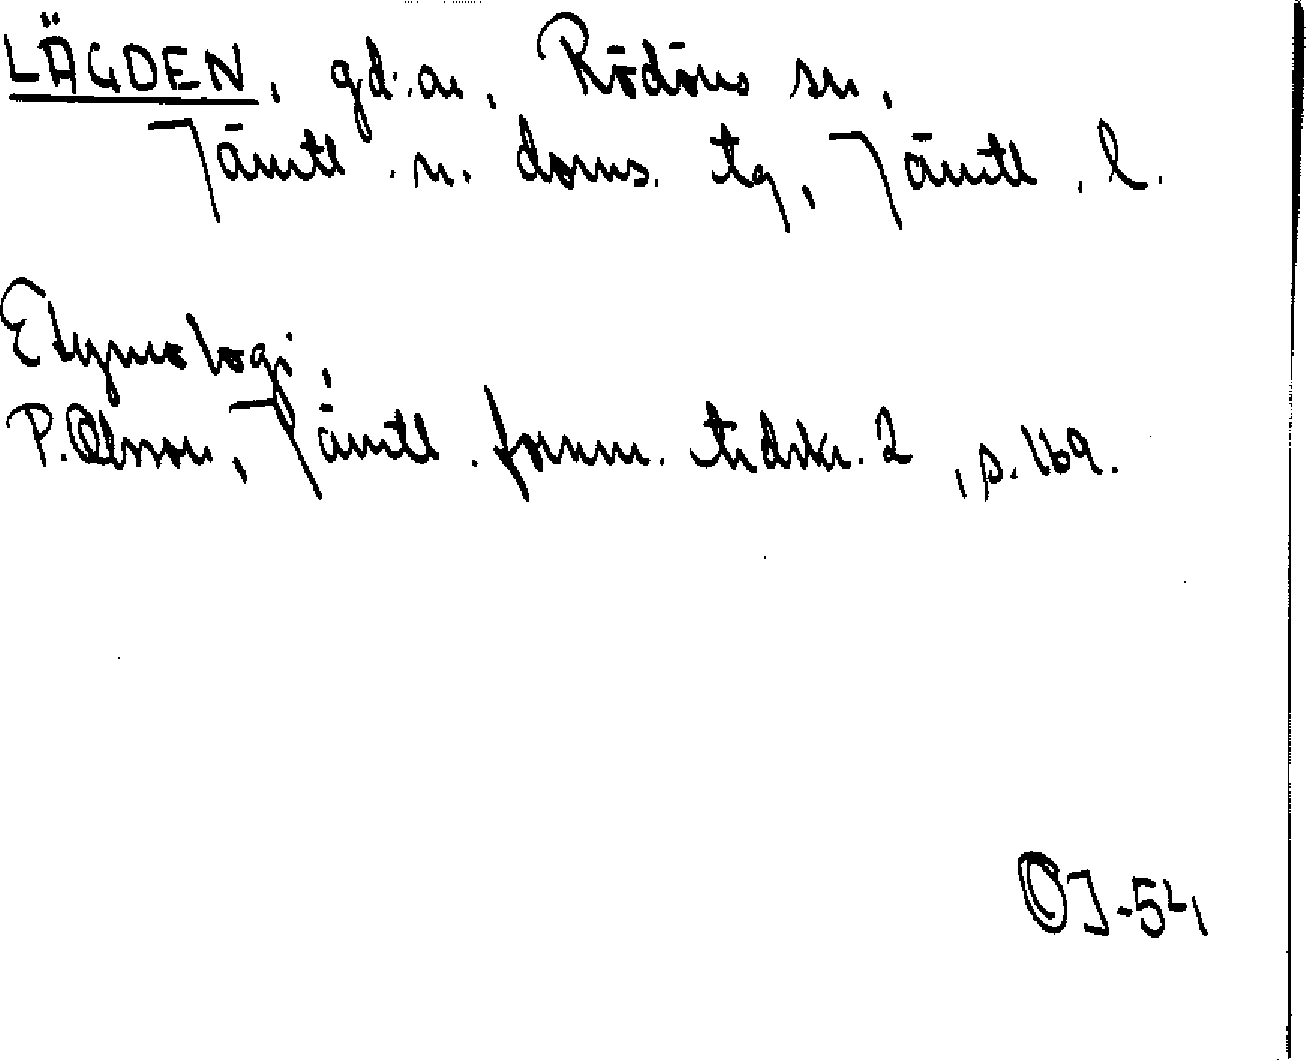 LÄGDEN, gd. ar, Rödöns sn,
Jämtl. n. doms. tg, Jämtl. l.
Etymologi.
P. Olsson, Jämtl. fornm. tidskr. 2, s. 169.
OJ-54